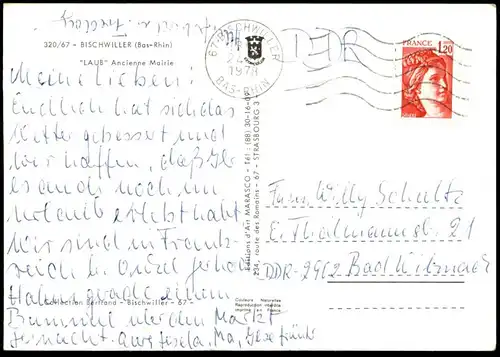 320/67 - BISCHWILLER (Bas-Rhin)
"LAUB" Ancienne Mairie
67-BISCHWILLER
1978
BAS-RHIN
DDR
FRANCE
1,20
Meine Lieben!
Endlich hat sich das
Wetter gebessert und
wir hoffen, daß Ihr
es auch noch im
Urlaub erlebt habt.
Wir sind in Frank-
reich b. Onkel
Haben grade einen
Bummel über den Markt
gemacht. Gisela, Ma,
Editions d'Art MARASCO - Tél : (88) 30-16-09
234, route des Romains - 67 - STRASBOURG 3
Fam. Willy Schultz
E. Thälmannstr. 21
DDR-2902 Bad Wilsnack
Collection Bertrand - Bischwiller - 67 -
Couleurs Naturelles
Reproduction interdite
Imprimé en France